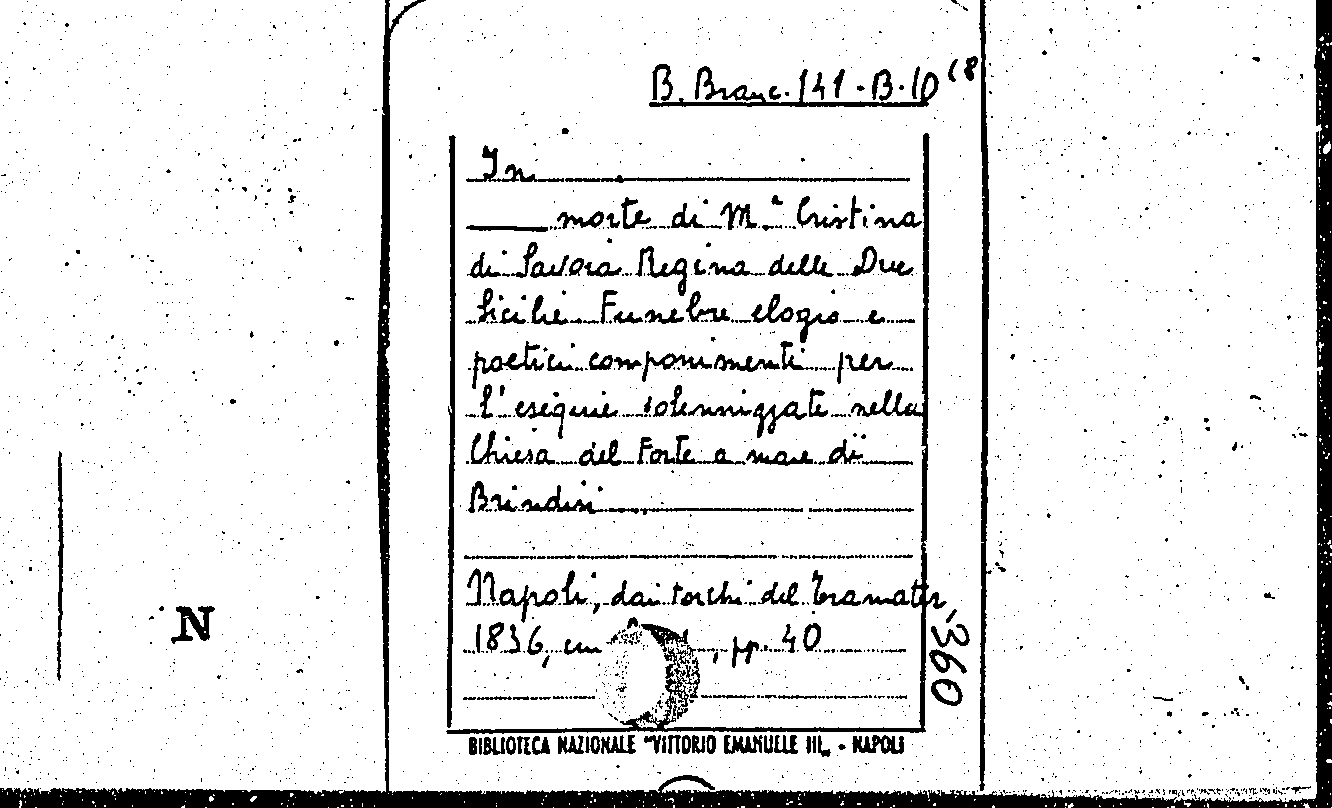 B. Branc. 141 - B - 10 (8
In
morte di M.ª Cristina
di Savoia Regina delle Due
Sicilie Funebre elogio e
poetici componimenti per
l'esequie solennizzate nella
Chiesa del Forte a mare di
Brindisi
Napoli, dai torchi del Tramater,
1836, cm , pp. 40
360
N
BIBLIOTECA NAZIONALE "VITTORIO EMANUELE III„ - NAPOLI